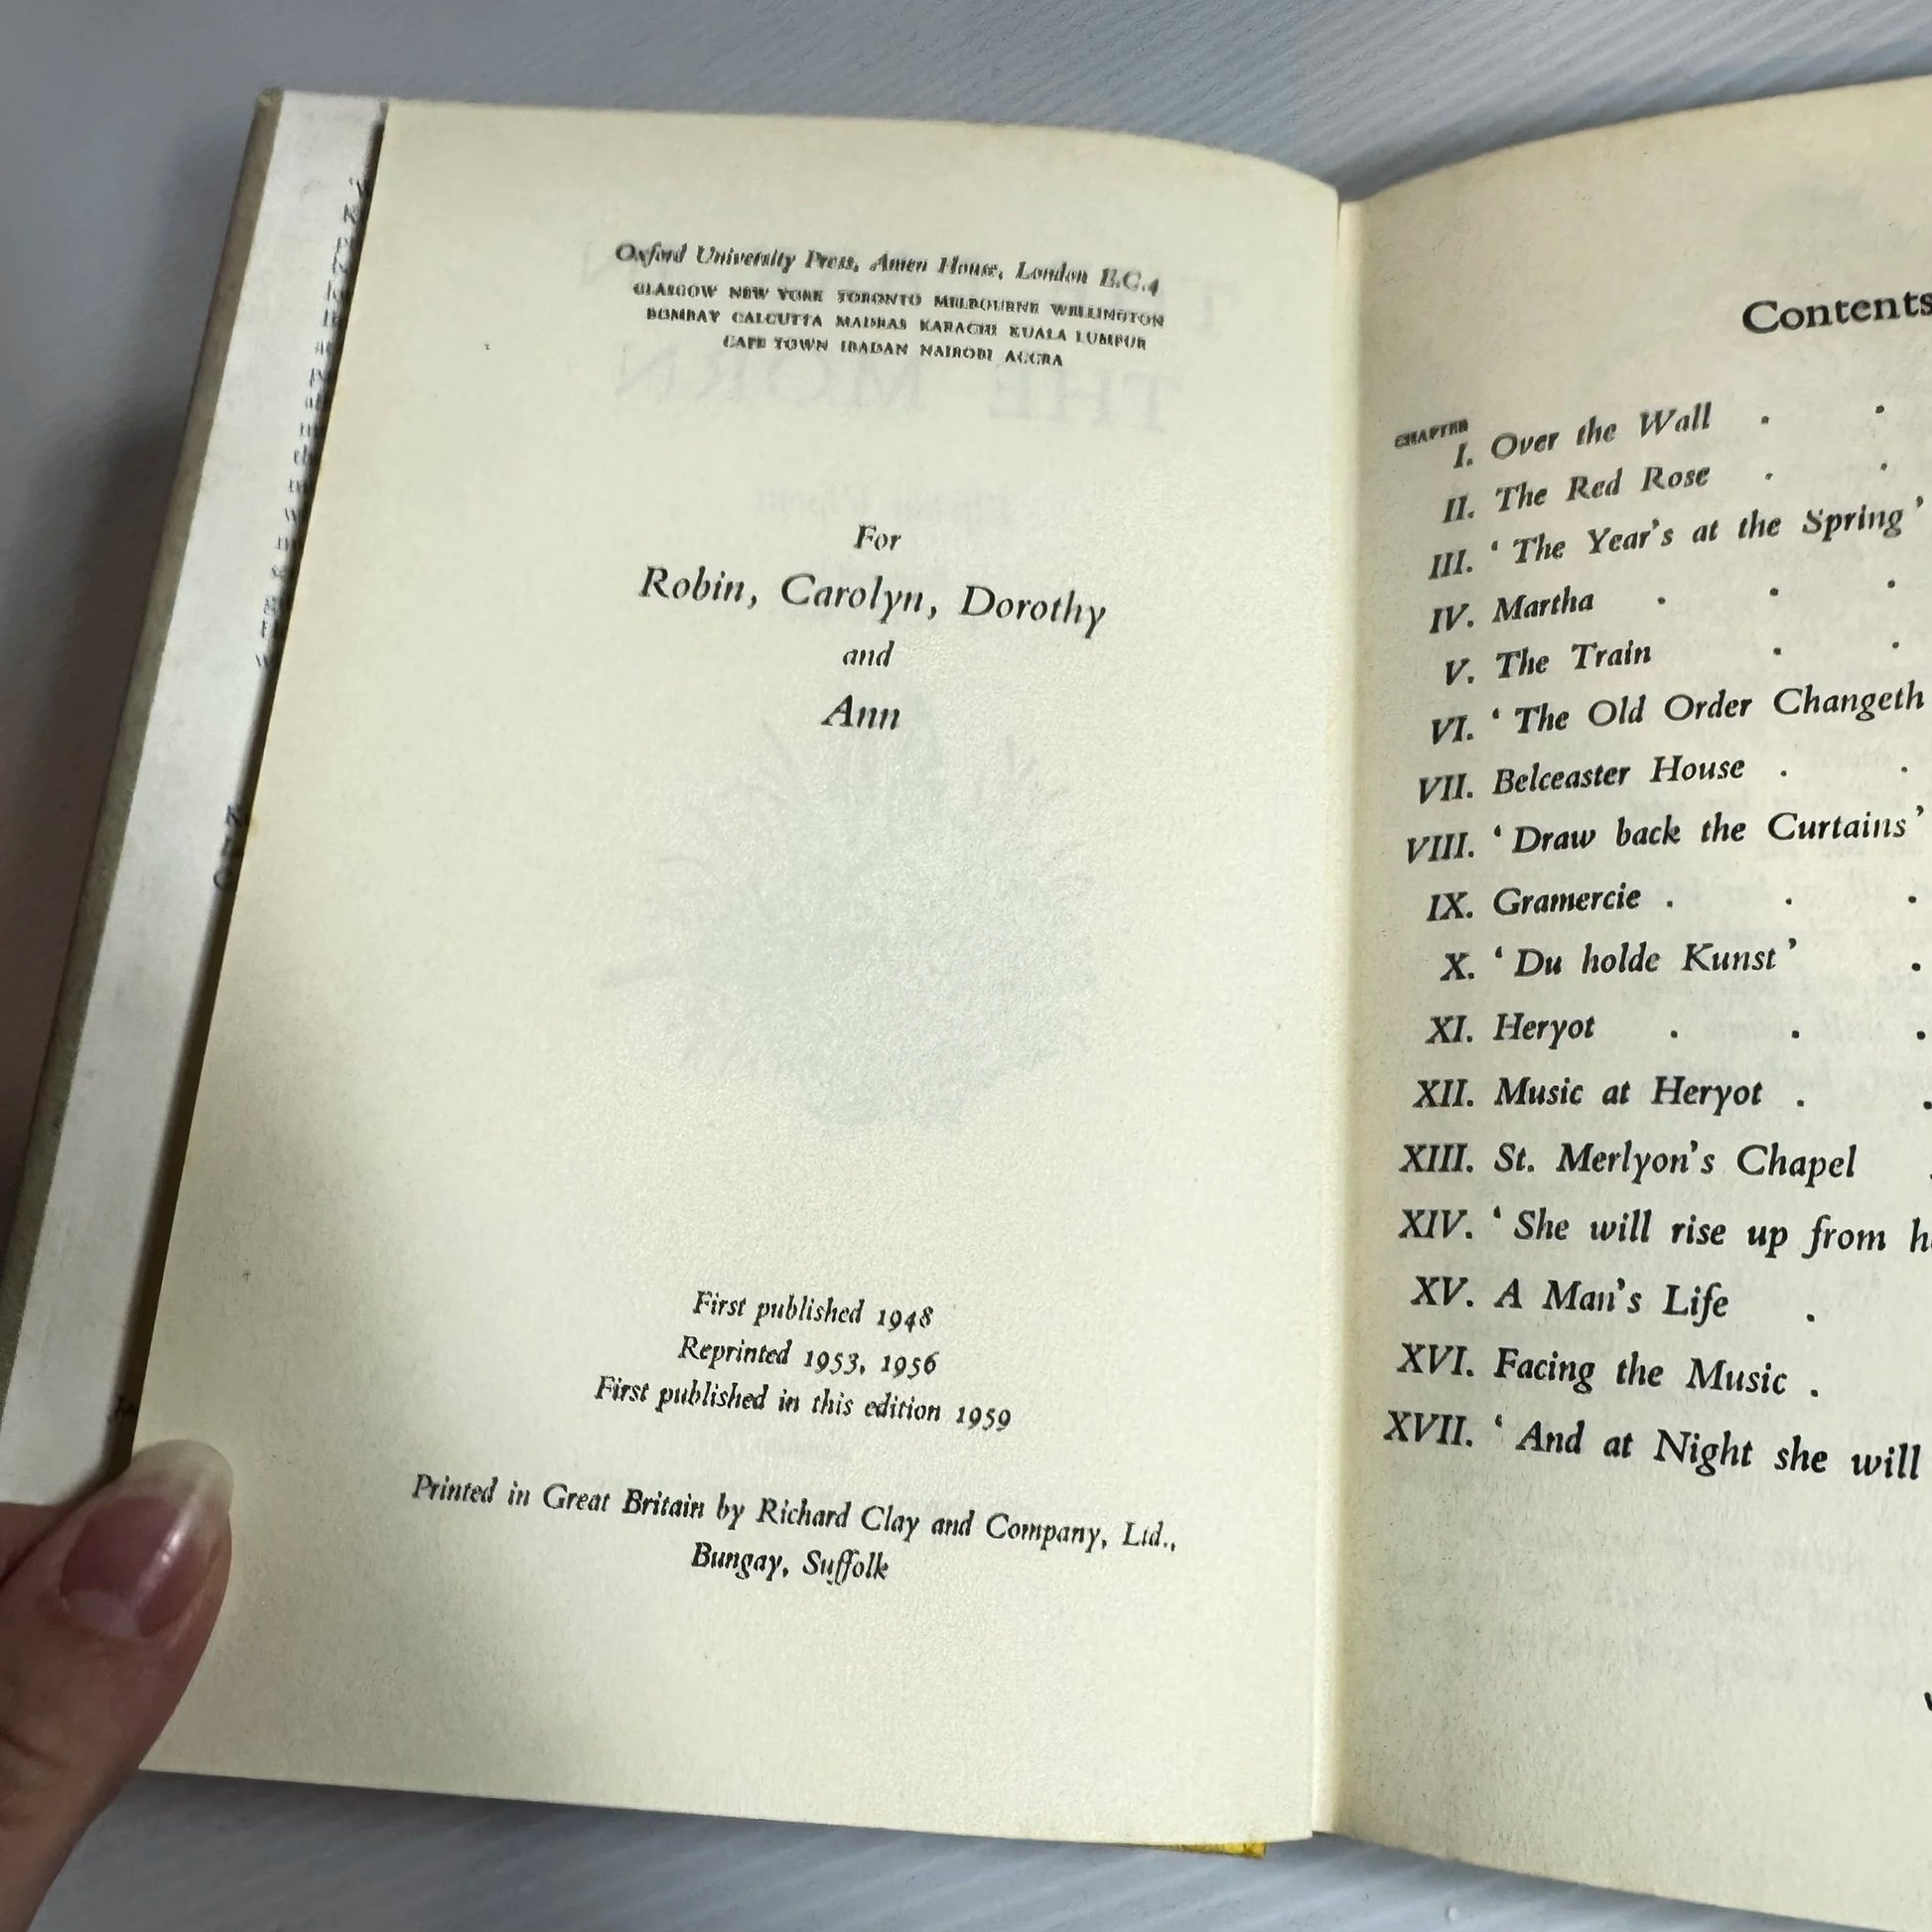 Oxford University Press, Amen House, London E.C.4
GLASGOW NEW YORK TORONTO MELBOURNE WELLINGTON
BOMBAY CALCUTTA MADRAS KARACHI KUALA LUMPUR
CAPE TOWN IBADAN NAIROBI ACCRA
For
Robin, Carolyn, Dorothy
and
Ann
First published 1948
Reprinted 1953, 1956
First published in this edition 1959
Printed in Great Britain by Richard Clay and Company, Ltd.,
Bungay, Suffolk
Contents
CHAPTER
I. Over the Wall . .
II. The Red Rose . .
III. ‘ The Year’s at the Spring ’
IV. Martha . . .
V. The Train . .
VI. ‘ The Old Order Changeth
VII. Belceaster House . .
VIII. ‘ Draw back the Curtains ’
IX. Gramercie . . .
X. ‘ Du holde Kunst ’ .
XI. Heryot . . .
XII. Music at Heryot . .
XIII. St. Merlyon’s Chapel
XIV. ‘ She will rise up from
XV. A Man’s Life .
XVI. Facing the Music .
XVII. ‘ And at Night she will